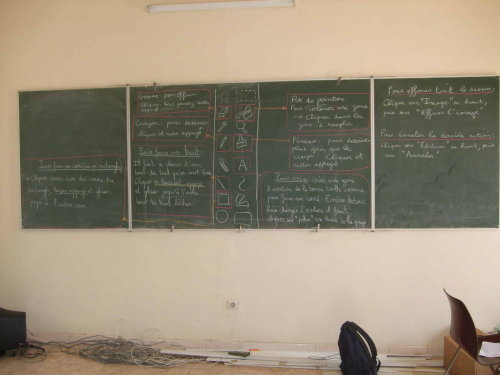 Gomme : pour effacer
Cliquer. Vous pouvez rester
appuyé
Crayon : pour dessiner
cliquer et rester appuyé
Pour faire un trait
Il faut se placer à un
bout du trait qu'on veut faire
cliquer en laissant appuyé
et glisser jusqu'à l'autre
bout du trait. Lâcher
Pour faire un
Cliquer dans un des coins du
rectangle, laisser appuyé et glisser
jusqu'à l'autre coin
A
Pot de peinture
Pour colorier une zone
→ Cliquer dans la
zone à remplir
Pinceau : pour dessiner
plus gros que le
crayon. Cliquer et
rester appuyé
Pour écrire : créer une zone
d'écriture de la bonne taille comme
pour faire un carré. Ecrire dedans
Pour changer l'écriture il faut
Pour effacer tout le dessin :
Cliquer sur "Image" en haut,
puis sur "Effacer l'image"
Pour annuler la dernière action :
Cliquer sur "Edition" en haut, puis
sur "Annuler"